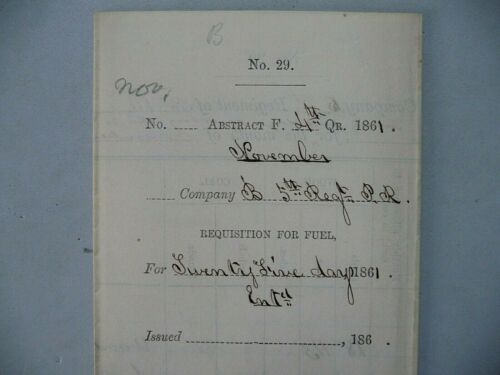 B
No. 29.
Nov,
No. ABSTRACT F. 4th QR. 1861.
November
Company B 5th Regt. P. R.
REQUISITION FOR FUEL,
For Twenty Five days 1861
Entd
Issued , 186 .